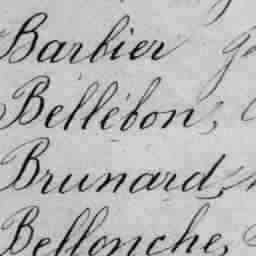 Barbier
Bellébon,
Brunard,
Bellonche,